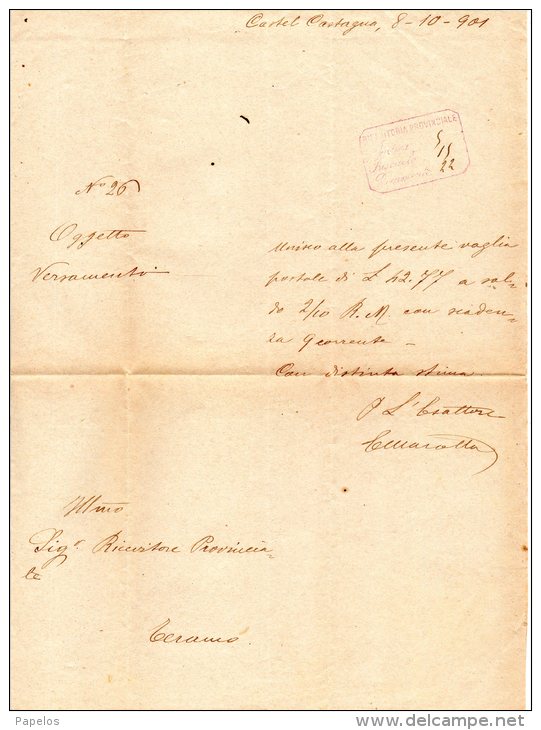 Castel Castagna, 8-10-901
RICEVITORIA PROVINCIALE
5
15
22
No 26
Oggetto
Versamento
Unisco alla presente vaglia
postale di £ 42.77 a sal-
do 2/10 R. M. con scaden-
za 9 corrente -
Con distinta stima
P L'Esattore
Illmo
Sigr Ricevitore Provincia-
le
Teramo
Papelos
www.delcampe.net